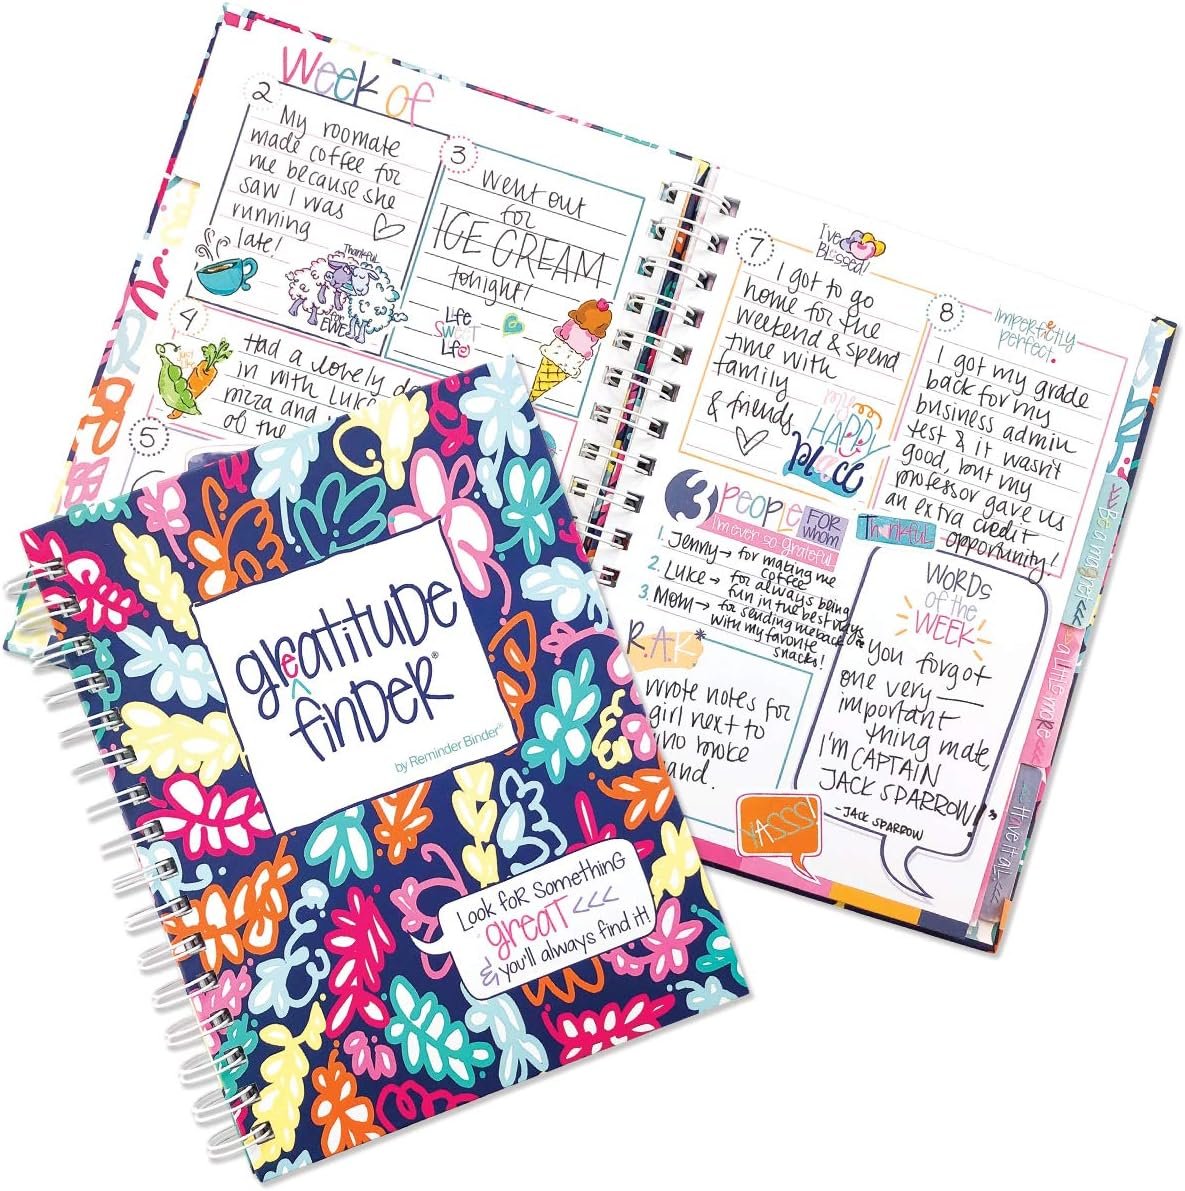 Week of
2
My roomate
made coffee for
me because she
saw I was
running
late!
Thankful
for
EWE
3
went out
for
ICE CREAM
tonight!
Life
SWEET
Life
4
Had a lovely
in with Luke
pizza and
of the
5
7
I've
Blessed!
I got to go
home for the
weekend & spend
time with
family
& friends
my
HAPPY
place
8
imperfectly
perfect.
I got my grade
back for my
business admin
test & it wasn't
good, but my
professor gave us
an extra credit
opportunity!
3 PEOPLE FOR
whom
I'm ever-so-grateful
1. Jenny → for making me
coffee
2. Luke → for always being
fun in the best ways
3. Mom → for sending me back
with my favorite
snacks!
R.A.K*
wrote notes for
girl next to
who broke
hand.
YASSS!
Thankful
WORDS
of the
WEEK
"You forgot
one very —
important
thing mate,
I'M CAPTAIN
JACK SPARROW!"
- JACK SPARROW
Be a magnet <<<
a little more <<<
Have it all
greatitude
finder®
by Reminder Binder®
Look for something
great <<<
& you'll always find it!